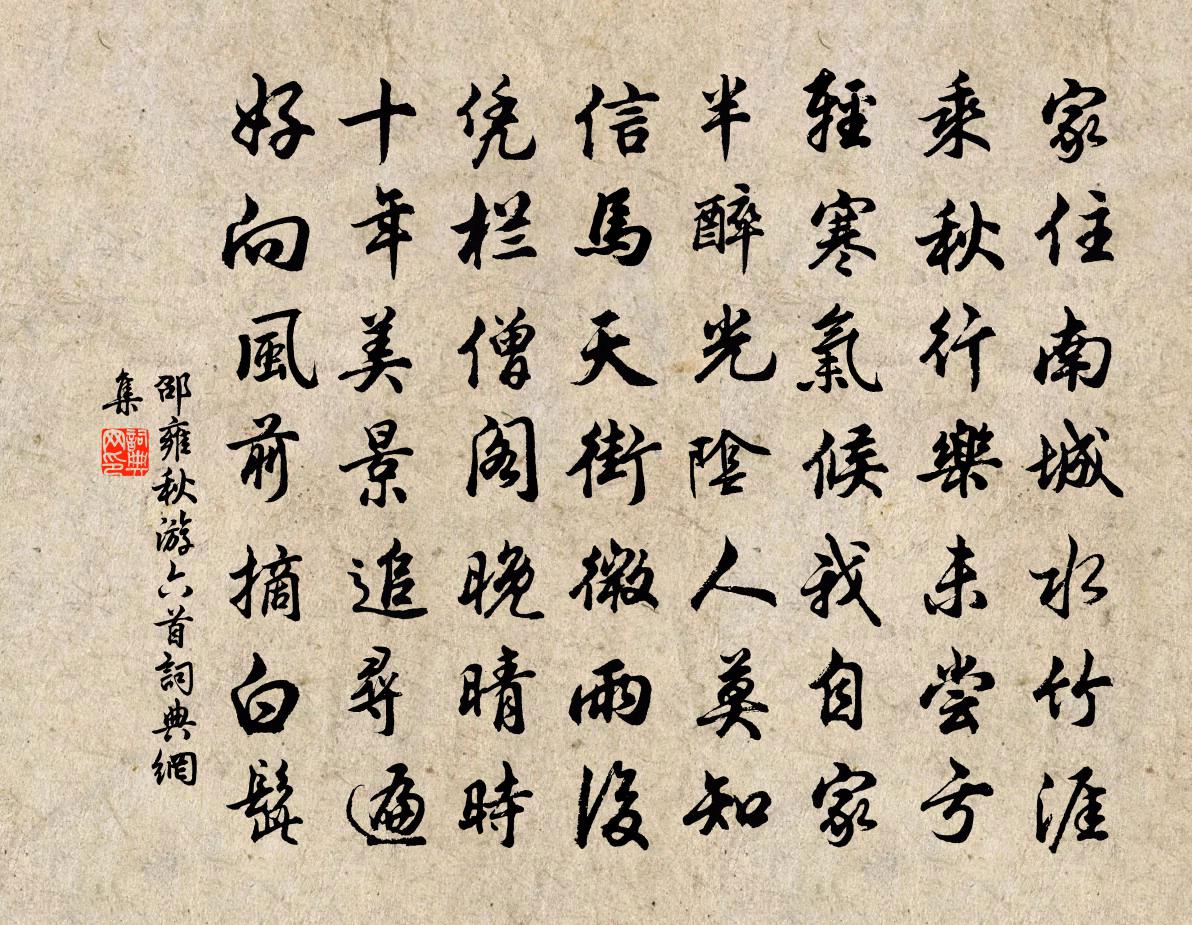 家住南城水竹涯
乘秋行樂未尝亏
輕寒氣候我自家
半醉光陰人莫知
信馬天街微雨後
凭栏僧阁晚晴時
十年美景追尋遍
好向風前摘白髭
邵雍秋游六首詞典網
集
詞典
网印